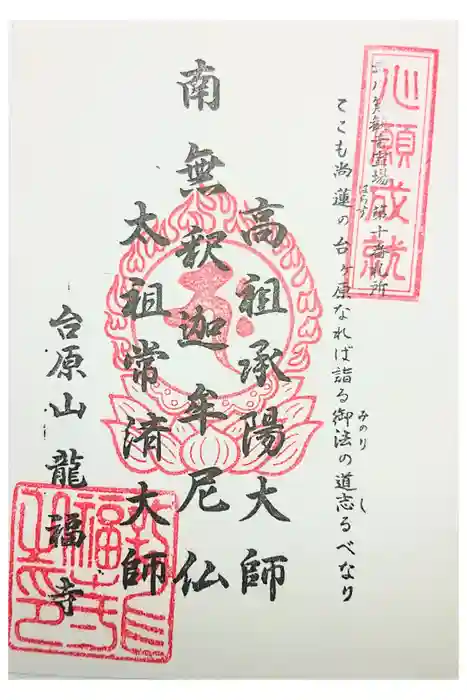 心願成就
観音霊場 第十番札所
てこも尚蓮の台ヶ原なれば詣る御法の道志るべなり
はらす
みのり
し
高祖承陽大師
南無釈迦牟尼仏
太祖常済大師
台原山 龍福寺